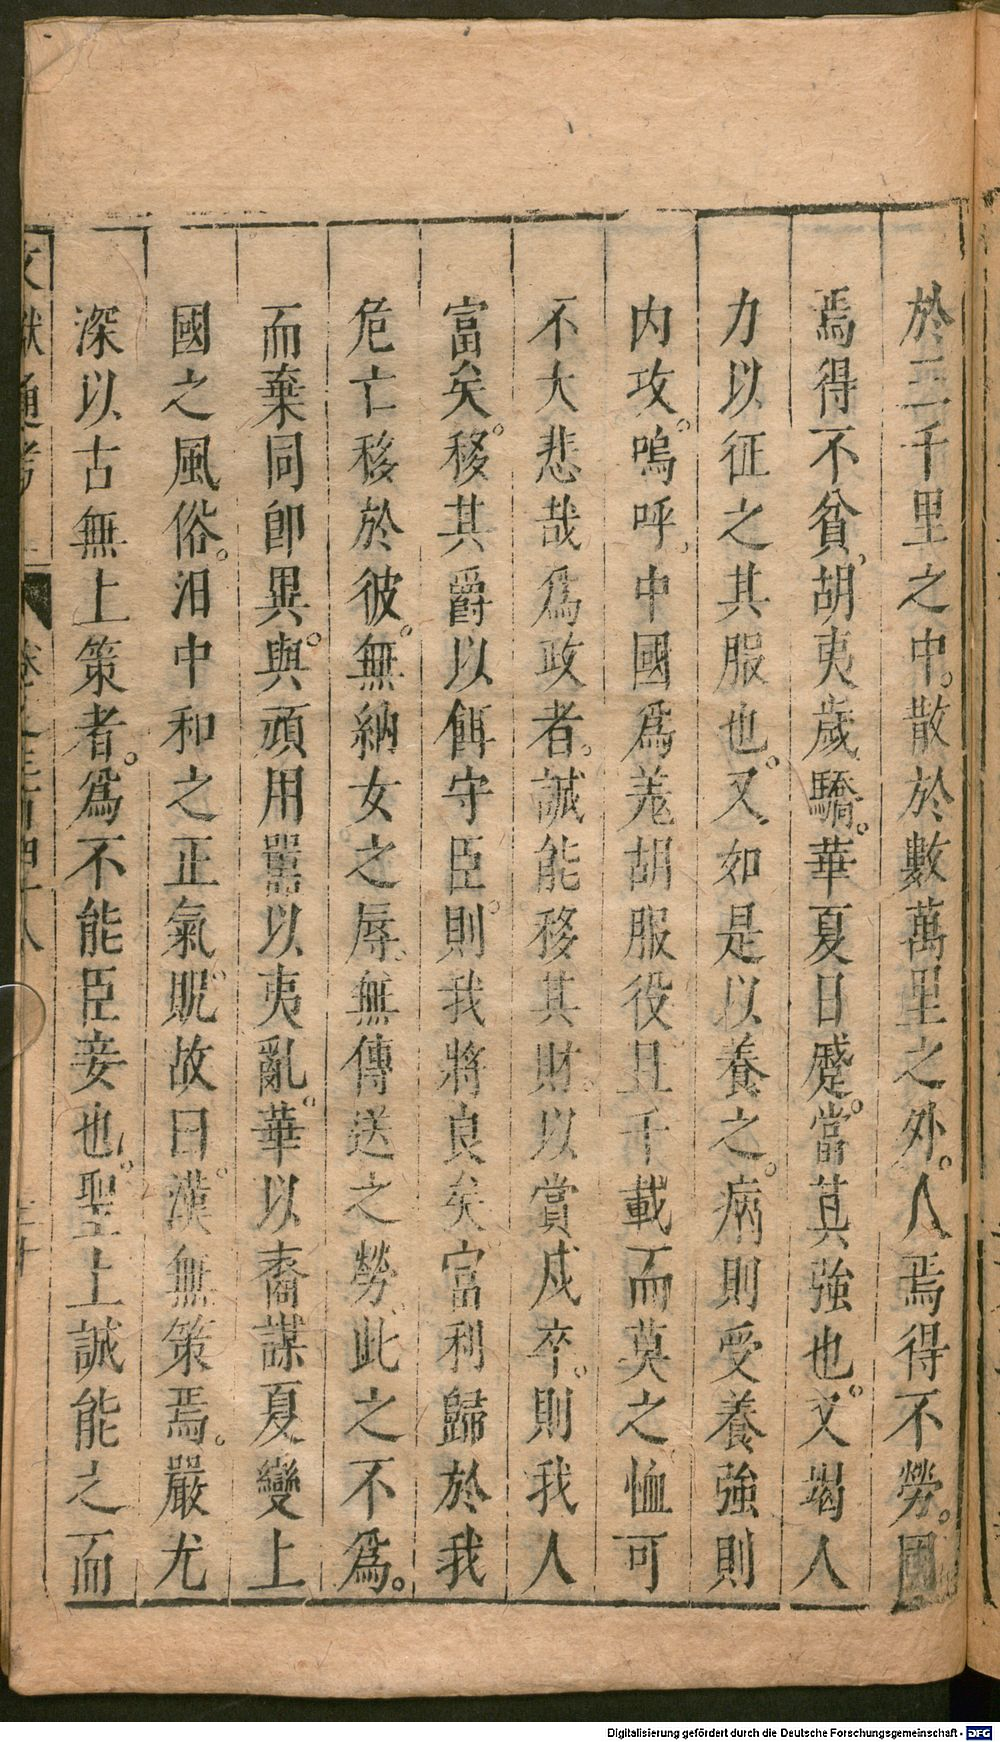 於三千里之中。散於數萬里之外。人焉得不勞。國
焉得不貧。胡夷歲驕。華夏日蹙。當其強也。又竭人
力以征之其服也。又如是以養之。病則受養強則
內攻。嗚呼。中國為羗胡服役且千載而莫之恤可
不大悲哉為政者。誠能移其財。以賞戍卒。則我人
富矣。移其爵以餌守臣。則我將良矣富利歸於我
危亡移於彼。無納女之辱。無傳送之勞。此之不為。
而棄同卽異。與頑用嚚以夷亂華。以裔謀夏變上
國之風俗。汨中和之正氣。昵故曰。漢無策焉。嚴尤
深以古無上策者。為不能臣妾也。聖上誠能之而
文獻通考 卷之三百四十八
Digitalisierung gefördert durch die Deutsche Forschungsgemeinschaft - DFG